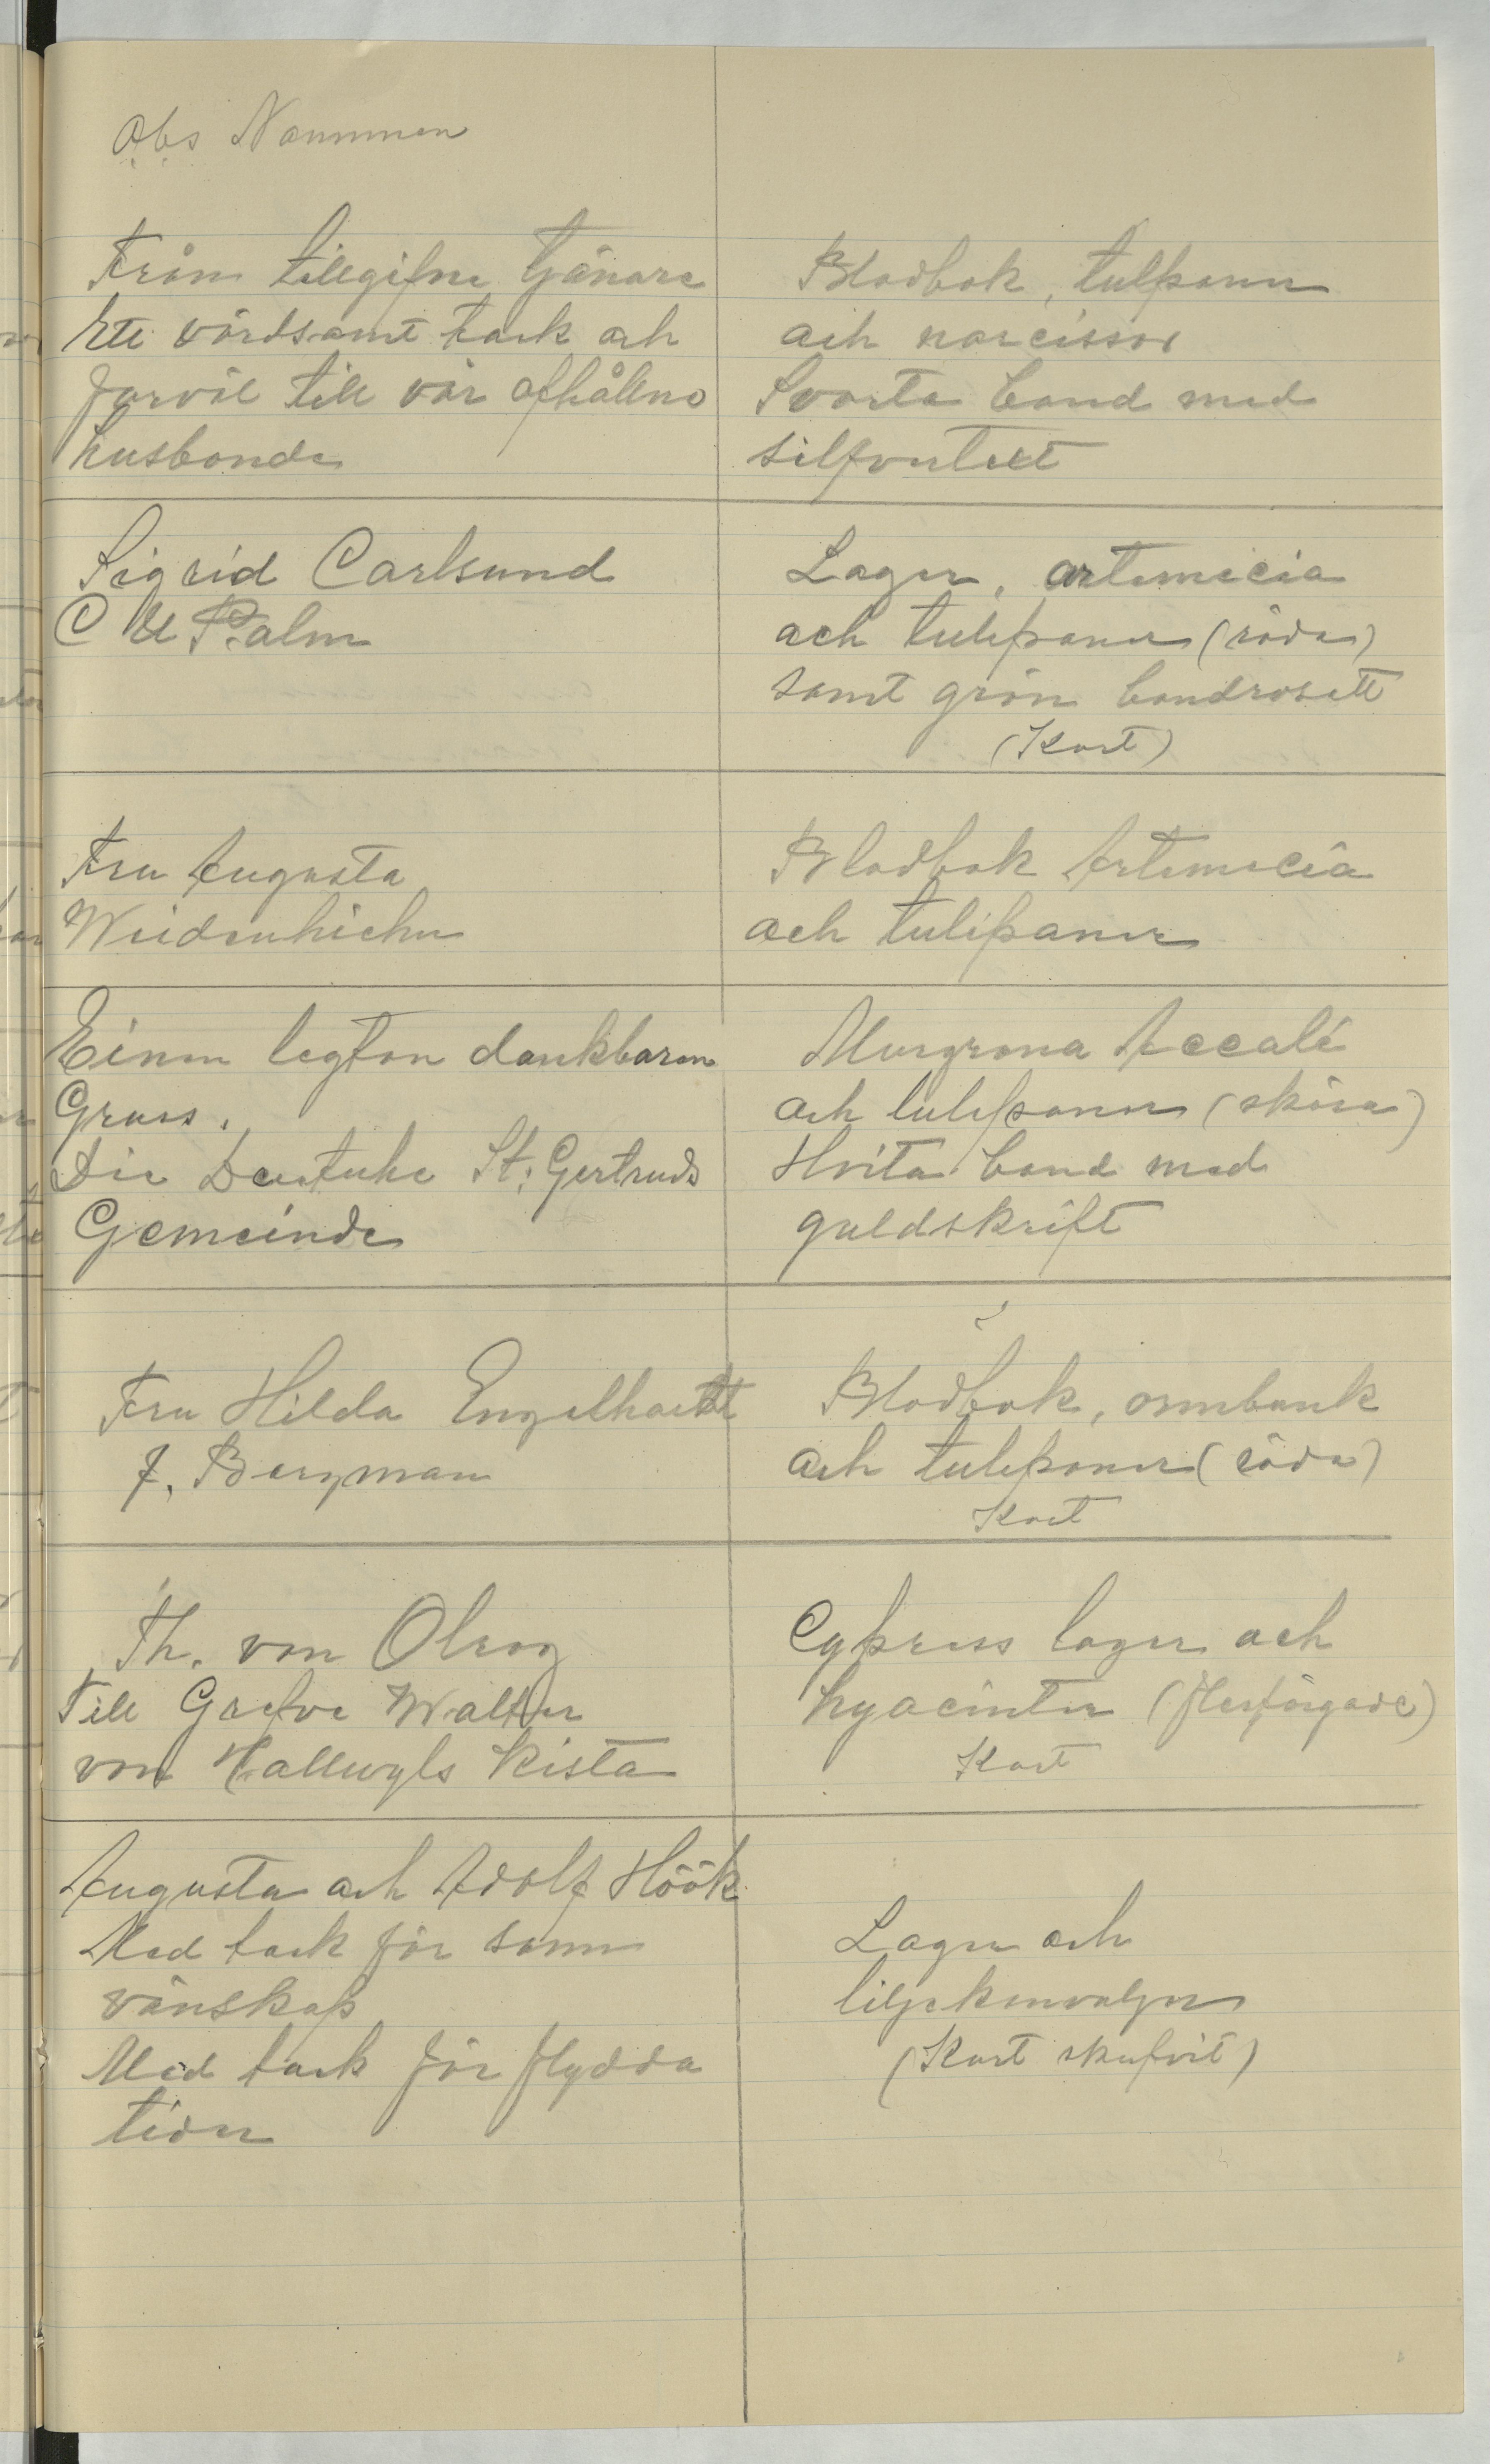 Obs Namnen
Från tillgifne tjänare
Ett vördsamt tack och
farväl till vår afhållna
husbonde
Blodbok, tulpaner
och narcisser
Svarta band med
silfvertext
Sigrid Carlsund
C W Palm
Lager, artemicia
och tulipaner (röda)
samt grön bandrosett
(Kort)
Fru Augusta
Blodbok Artemicia
och tulipaner
Einen legten dankbaren
Gruss.
Die Deutsche St. Gertruds
Gemeinde
Murgröna Accali
och tulipaner (skära)
Hvita band med
guldskrift
Fru Hilda Engelhardt
f. Bergman
Blodbok, ormbunk
och tulipaner (röda)
Kort
Th. von Olrog
Till Grefve Walther
von Hallwyls kista
Cypress lager och
hyacinter (flerfärgade)
Kort
Augusta och Adolf Höök
Med tack för sann
vänskap
Med tack för flydda
tider
Lager och
liljekonvaljer
(Kort skrifvit)